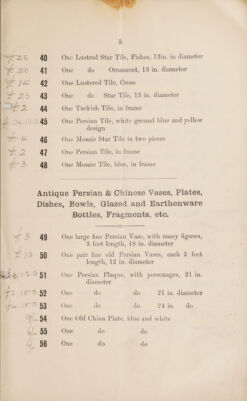 5
£25 40 One Lustred Star Tile, Fishes, 13in. in diameter
£20 41 One do Ornament, 13 in. diameter
£14 42 One Lustered Tile, Cross
£25 43 One do Star Tile, 13 in. diameter
£2 44 One Turkish Tile, in frame
45 One Persian Tile, white ground blue and yellow
design
£4 46 One Mosaic Star Tile in two pieces
£2 47 One Persian Tile, in frame
£3 48 One Mosaic Tile, blue, in frame
Antique Persian & Chinese Vases, Plates,
Dishes, Bowls, Glazed and Earthenware
Bottles, Fragments, etc.
£3 49 One large fine Persian Vase, with many figures,
3 feet length, 18 in. diameter
£10 50 One pair fine old Persian Vases, each 2 feet
length, 12 in. diameter
51 One Persian Plaque, with personages, 21 in.
diameter
52 One do do 21 in. diameter
53 One do do 24 in. do
54 One Old China Plate, blue and white
55 One do do
56 One do do